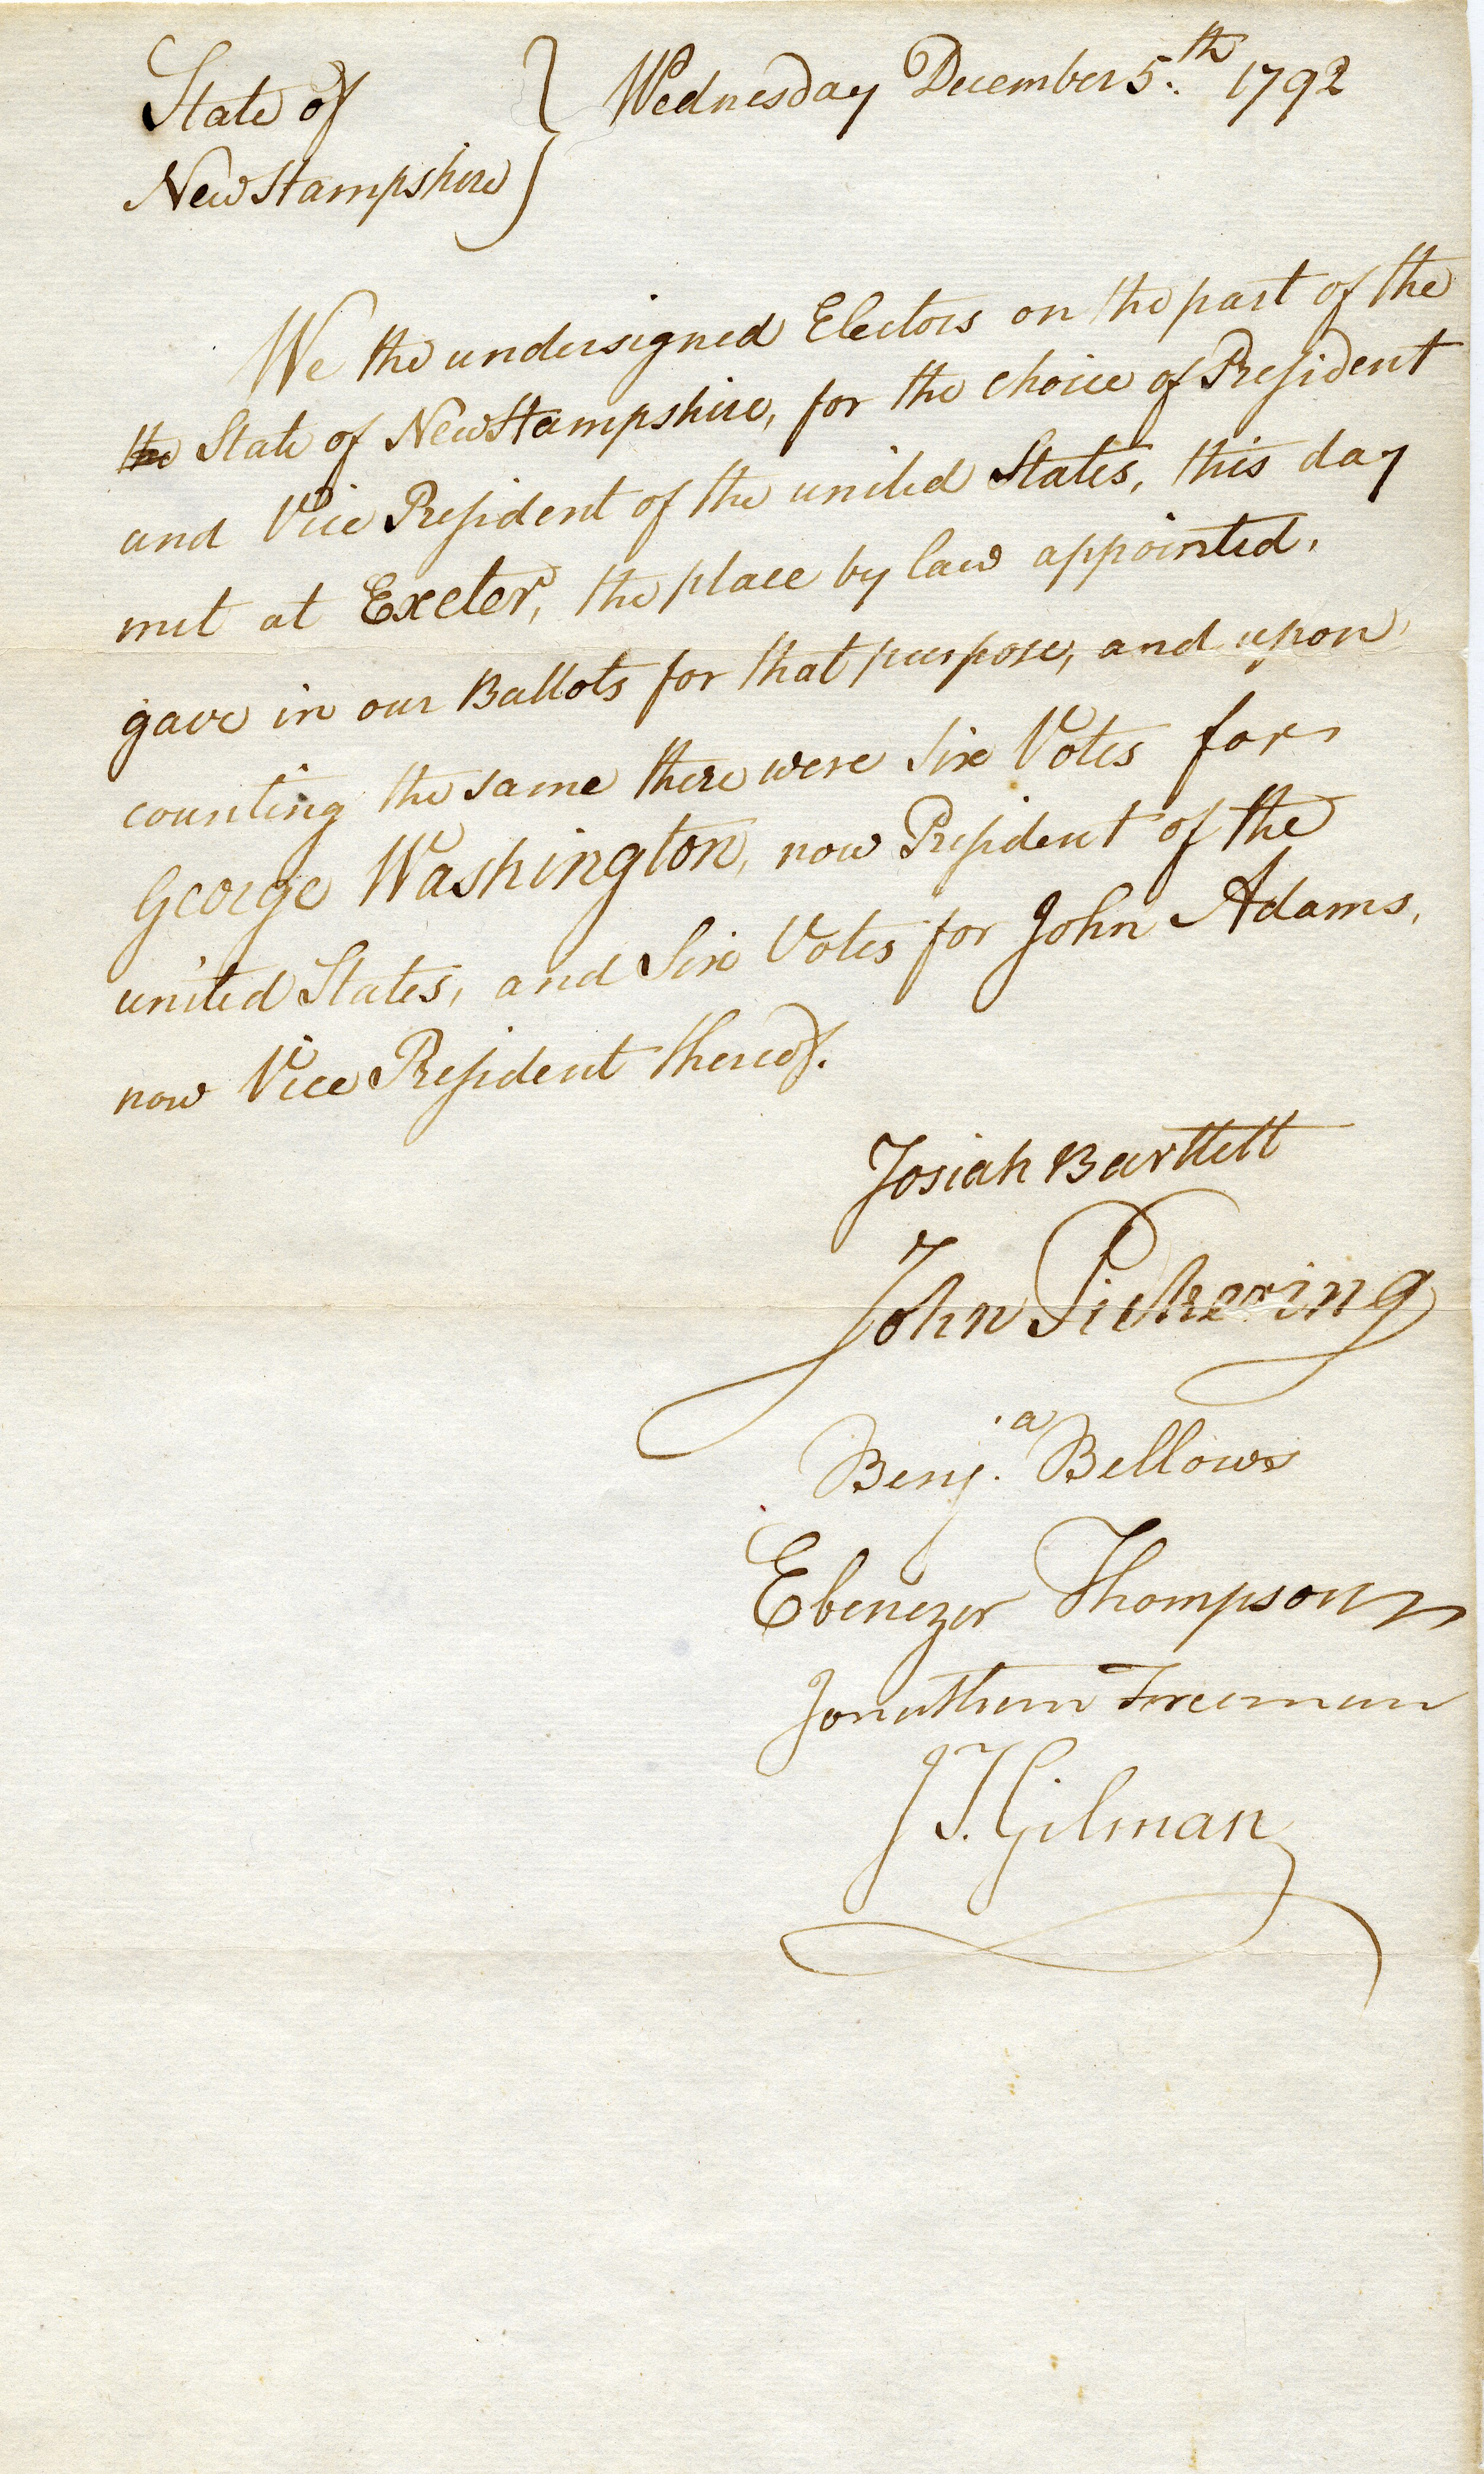 State of } Wednesday December 5.th 1792
New Hampshire
We the undersigned Electors on the part of the
the State of New Hampshire, for the choice of President
and Vice President of the united States, this day
met at Exeter, the place by law appointed,
gave in our Ballots for that purpose, and upon
counting the same there were Six Votes for
George Washington, now President of the
united States, and Six Votes for John Adams,
now Vice President thereof.
Josiah Bartlett
John Pickering
Benj.a Bellows
Ebenezer Thompson
Jonathan Freeman
J T. Gilman